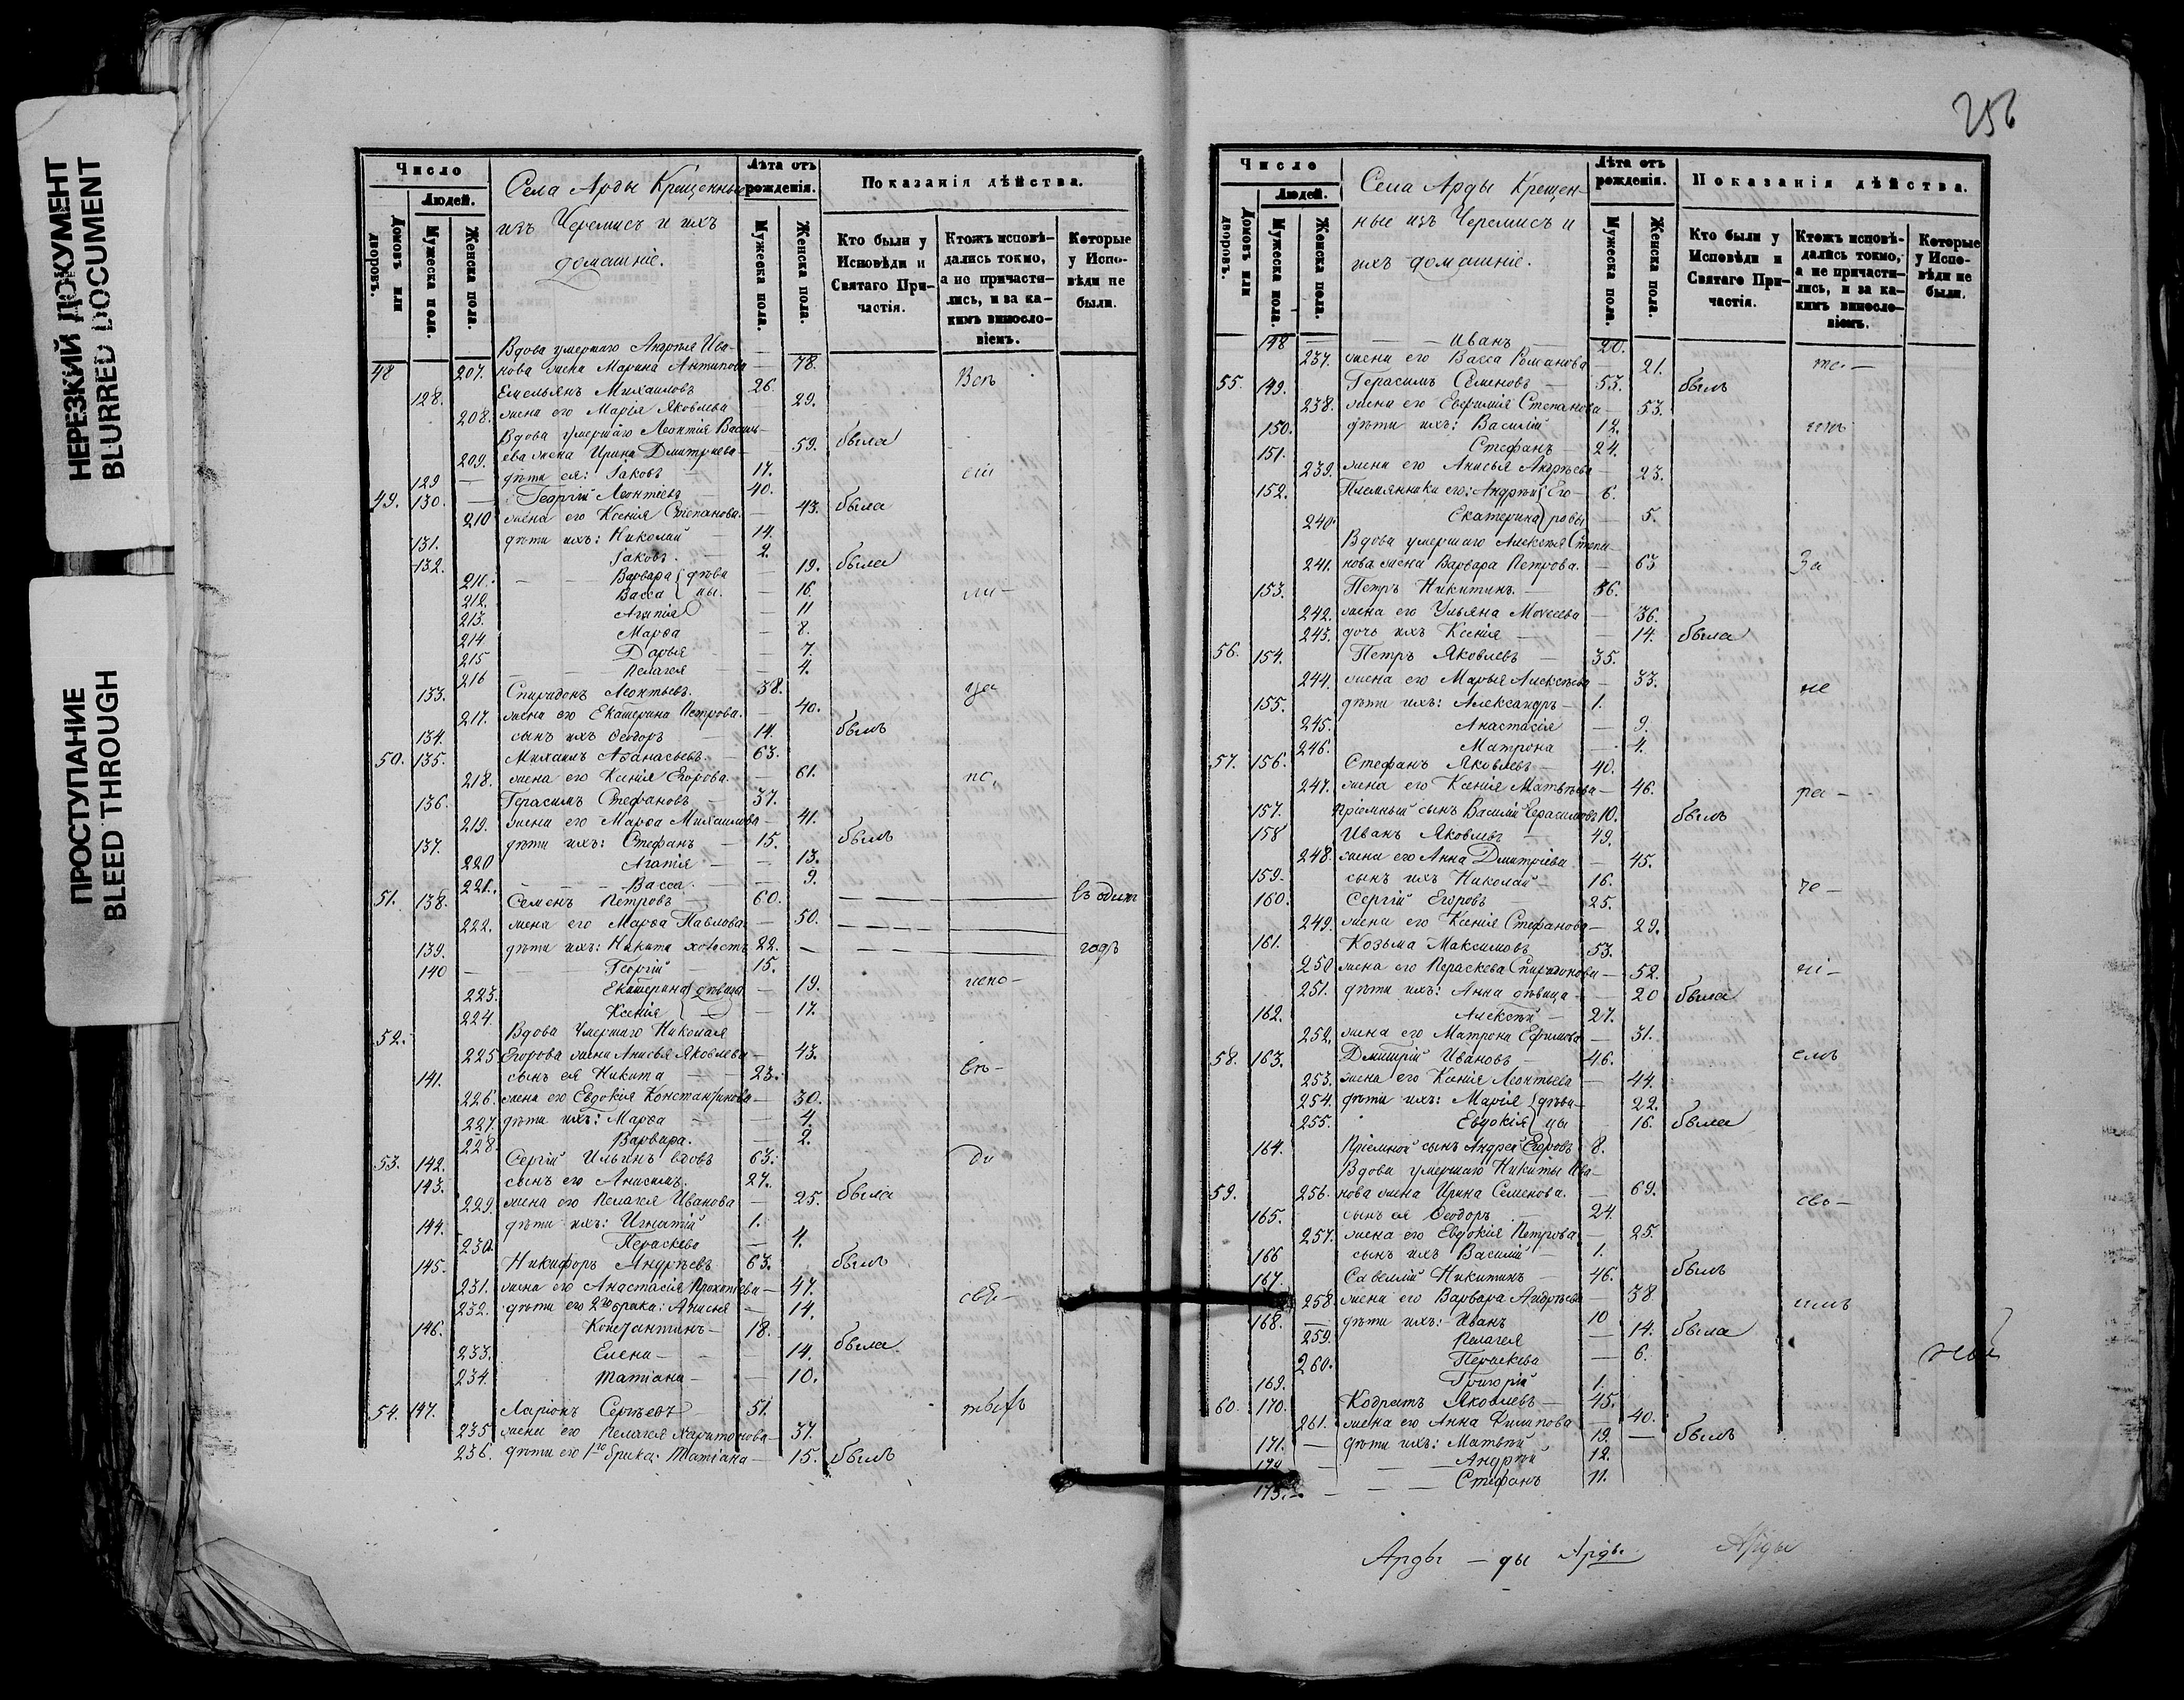 НЕРЕЗКИЙ ДОКУМЕНТ
BLURRED DOCUMENT
ПРОСТУПАНИЕ
BLEED THROUGH
Число
Людей.
Домовъ или дворовъ.
Мужеска пола.
Женска пола.
Села Арды Крещенные
изъ Черемисъ и ихъ
домашніе.
Лѣта отъ рожденія.
Мужеска пола.
Женска пола.
Показанія дѣйства.
Кто были у Исповѣди и Святаго Причастія.
Ктожъ исповѣдались токмо, а не причастились, и за какимъ винословіемъ.
Которые у Исповѣди не были.
Вдова умершаго Андрея Ива-
48 207. нова жена Марина Антипова — 78. Всѣ
128. Емельянъ Михаиловъ 26.
208. жена его Марія Яковлева 29.
Вдова умершаго Леонтія Василь-
209. ева жена Ирина Дмитриева — 59. была
129 — дѣти ея: Іаковъ — 17. сіи
49. 130. — Георгій Леонтіевъ 40.
210 жена его Ксенія Степанова. — 43. была
131. дѣти ихъ: Николай — 14.
132. Іаковъ. — 2.
211. — — Варвара дѣви 19. была
212. Васса цы. — 16. ли —
213. Агапія — 11
214 Марѳа — 8.
215 Дарья — — 7.
216 — — Пелагея — 4.
133. Спиридонъ Леонтьевъ. 38. ца
217. жена его Екатерина Петрова. — 40.
134. сынъ ихъ Ѳеодоръ — 14. былъ
50. 135. Михаилъ Аѳанасьевъ. — 63.
218. жена его Ксенія Егорова. — 61. ис.
136. Герасимъ Стефановъ — 37.
219. жена его Марѳа Михаилова — 41.
137. дѣти ихъ: Стефанъ — 15. былъ
220 Агапія — — 13.
221. — — — Васса. — — 9.
51. 138. Семенъ Петровъ — 60. въ одинъ
222. жена его Марѳа Павлова. — 50.
139. дѣти ихъ: Никита холостъ 22. — годъ
140 — Георгій 15.
223. Екатерина дѣвицы — 19. испо —
224. Ксенія — 17.
52. Вдова умершаго Николая
225 Егорова жена Анисья Яковлева — 43.
141. сынъ ея Никита — 23. вѣ —
226. жена его Евдокія Константинова — 30.
227. дѣти ихъ: Марѳа — 4.
228. Варвара. — 2.
53. 142. Сергій Ильинъ вдовъ 63. ди
143. сынъ его Анисимъ. 27.
229. жена его Пелагея Иванова — 25. была
144. дѣти ихъ: Игнатій 1.
230. Параскева — 4.
145. Никифоръ Андреевъ 63. былъ
231. жена его Анастасія Прокопіева — 47.
232. дѣти его 2го брака: Анисия — 14.
146. Константинъ — 18.
233. Елена — 14. была
234. Татіана — — 10.
54. 147. Ларіонъ Сергѣевъ 51.
235 жена его Пелагея Харитонова — 37.
236. дѣти его 1го брака: Татіана — 15. былъ
256
Число
Людей.
Домовъ или дворовъ.
Мужеска пола.
Женска пола.
Села Арды Крещен-
ные изъ Черемисъ и
ихъ домашніе.
Лѣта отъ рожденія.
Мужеска пола.
Женска пола.
Показанія дѣйства.
Кто были у Исповѣди и Святаго Причастія.
Ктожъ исповѣдались токмо, а не причастились, и за какимъ винословіемъ.
Которые у Исповѣди не были.
148 — — — Иванъ 20.
237. жена его Васса Романова 21.
55. 149. Герасимъ Семеновъ — 53. былъ
238. жена его Евфимія Степанова — 53.
150. дѣти ихъ: Василій 12.
151. Стефанъ — 24.
239. жена его Анисья Андреева — 23.
152. Племянники его: Андрей Его- 6.
240. Екатерина ровы — 5.
Вдова умершаго Алексѣя Степа-
241. нова жена Варвара Петрова. — 63 За
153. Петръ Никитинъ. — 36.
242. жена его Ульяна Моѵсеева — 36.
243. дочь ихъ Ксенія — — 14. была
56. 154. Петръ Яковлевъ — 35.
244. жена его Марья Алексѣева — 33. не
155. дѣти ихъ: Александръ — 1.
245. Анастасія — 9.
246. Матрона — 4.
57. 156. Стефанъ Яковлевъ — 40.
247. жена его Ксенія Матвѣева — 46. ра —
157. Пріемный сынъ Василій Герасимовъ 10. былъ
158 Иванъ Яковлевъ — 49.
248. жена его Анна Дмитріева — 45.
159. сынъ ихъ Николай — 16. че —
160. Сергій Егоровъ — 25.
249. жена его Ксенія Стефанова — 29.
161. Козьма Максимовъ 53.
250. жена его Параскева Спиридонова — 52. ні —
251. дѣти ихъ: Анна дѣвица — 20 была
162. Алексѣй — 27.
252. жена его Матрона Ефимова — 31.
58. 163. Дмитрій Ивановъ — 46. емъ
253. жена его Ксенія Леонтьева — 44.
254. дѣти ихъ: Марія дѣви- 22.
255. Евдокія цы 16. была
164. Пріемной сынъ Андрей Егоровъ 8.
Вдова умершаго Никиты Ива-
59. 256. нова жена Ирина Семенова. — 69. сво —
165. сынъ ея Ѳеодоръ 24.
257. жена его Евдокія Петрова — 25.
166 сынъ ихъ Василій — 1.
167. Савелій Никитинъ — 46. былъ
258. жена его Варвара Андреева — 38.
168. — дѣти ихъ: — Иванъ 10 имъ
259. Пелагея — 14. была
260. Параскева — 6.
169. Григорій 1.
60. 170. Кодратъ Яковлевъ — 45.
261. жена его Анна Филипова — 40.
171. — дѣти ихъ: Матвѣй 19. — былъ
172 — — — Андрей 12.
173. — — — Стефанъ 11.
Арды — ды Арды Арды